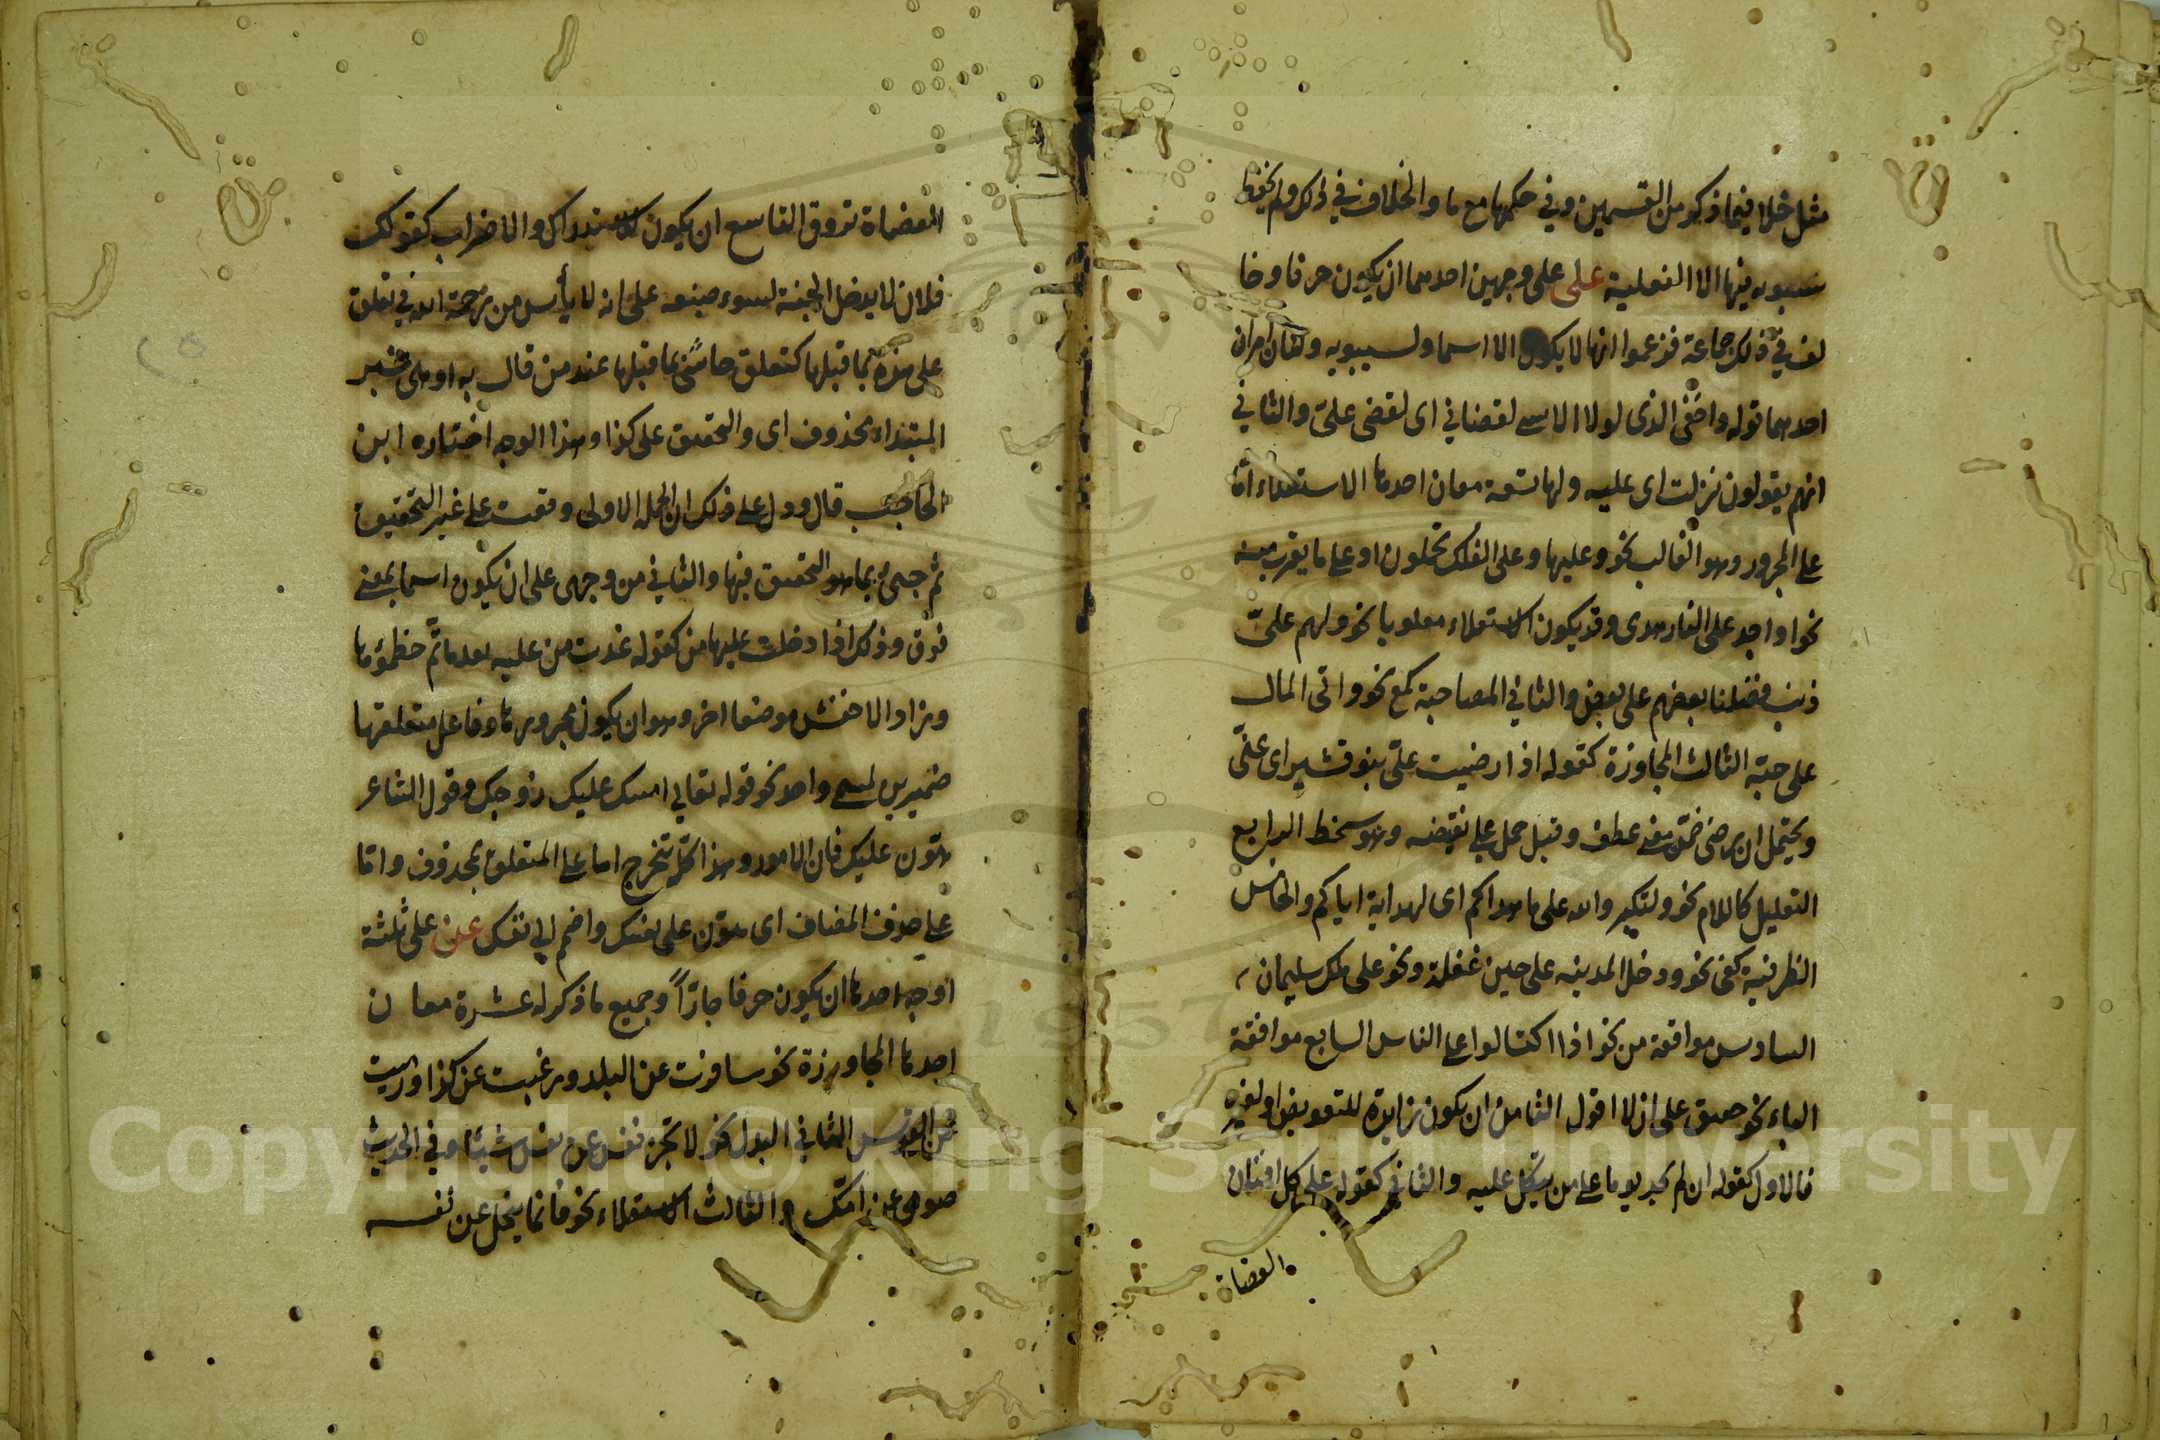 مثل خلا فيما ذكر من القسمين وفي حكمها مع ما والخلاف في ذلك ولم يحفظ
سيبويه فيها الا الفعلية على على وجهين احدهما ان يكون حرفا وخا
لف في ذلك جماعة فزعموا انها لا يكون الا اسما ولسيبويه ولنا امران
احدهما قوله واخفى الذى لولا الاسى لقضاني اى لقضى علىّ والثاني
انهم يقولون نزلت اى عليه ولها تسعة معان احدها الاستعلاء امّا
على المجرور وهو الغالب نحو وعليها وعلى الفلك تحملون او على ما يقرب منه
نحو او اجد على النار هدى وقد يكون الاستعلاء معنويا نحو ولهم علىّ
ذنب فضلنا بعضهم على بعض والثاني المصاحبة كمع نحو واتى المال
على حبّه الثالث المجاوزة كقوله اذا رضيت علىّ بنو قشير اى عنّى
ويحتمل ان رضى ضمّن معنى عطف وقيل حمل على نقيضه وهو سخط الرابع
التعليل كاللام نحو ولتكبروا الله على ما هداكم اى لهدايته اياكم والخامس
الظرفية كفى نحو ودخل المدينه على حين غفلة ونحو على ملك سليمان
السادس موافقة من نحو اذا اكتالوا على الناس السابع موافقة
الباء نحو حقيق على ان لا اقول الثامن ان يكون زايدة للتعويض او لغيره
فالاول كقوله ان لم يجد يوما على من يتّكل عليه والثاني كقوله على كل افنان
العضاة
العضاة تروق التاسع ان يكون للاستدراك والاضراب كقولك
فلان لا يدخل الجنة لسوء صنعه على انه لا يأس من رحمة الله في تعلق
على هذه بما قبلها كتعلق حاشى بما قبلها عند من قال به او هى خبر
المبتداء محذوف اى والتحقيق على كذا وهذا الوجه اختاره ابن
الحاجب قال ودل على ذلك ان الجمله الاولى وقعت على غير التحقيق
ثم جىء بما هو التحقيق فيها والثاني من وجهى على ان يكون اسما بمعنى
فوق وذلك اذا دخلت عليها من كقوله غدت من عليه بعد ما تمّ خظمؤها
وزاد الاخفش موضعا اخر وهو ان يكون مجرورها وفاعل متعلقها
ضميرين لمسمى واحد نحو قوله تعالي امسك عليك زوجك وقول الشاعر
هوّن عليك فان الامور وهذا كلّه يتخرج اما على المتعلق بمحذوف واما
على حذف المضاف اى هوّن على نفسك واضمم الي نفسك عن على ثلثة
اوجه احدها ان يكون حرفا جارّاً وجميع ما ذكر له عشرة معان
احدها المجاوزة نحو سافرت عن البلد ورغبت عن كذا ورميت
عن القوس الثاني البدل نحو لا تجزى نفس عن نفس شيئا وفي الحديث
صومى عن امّك والثالث الاستعلاء نحو فانما يبخل عن نفسه
Copyright © King Saud University
1957